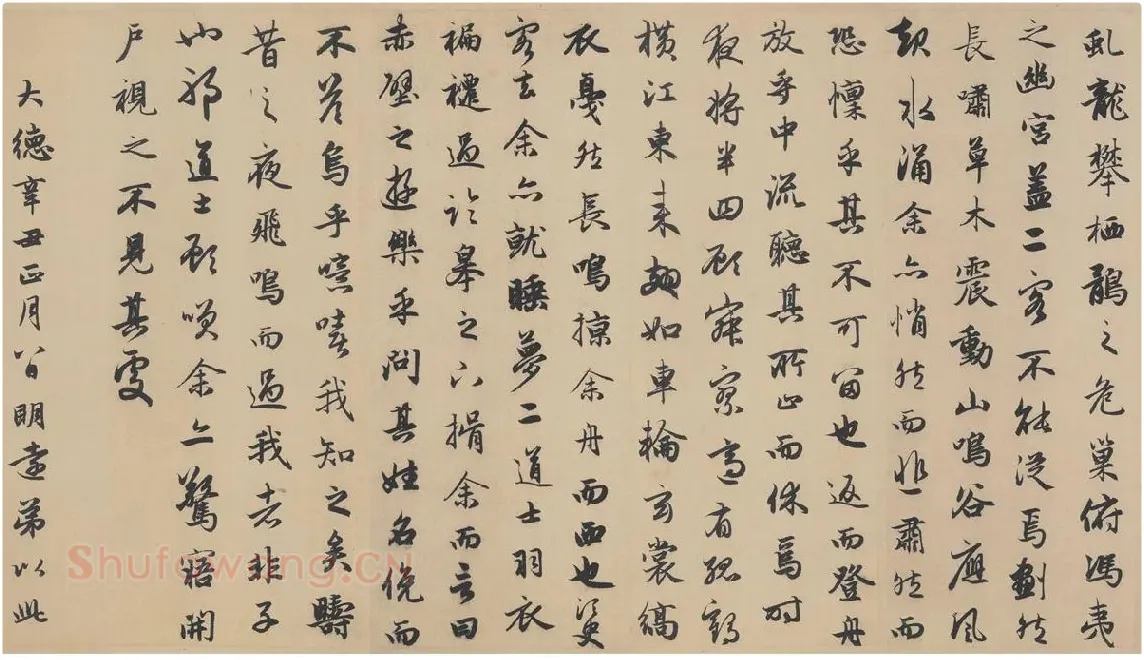 虬龍攀栖鶻之危巢俯馮夷
之幽宮蓋二客不能從焉劃然
長嘯草木震動山鳴谷應風
起水涌余亦悄然而悲肅然而
恐懍乎其不可留也返而登舟
放乎中流聽其所止而休焉時
夜將半四顧寂寥適有孤鶴
橫江東來翅如車輪玄裳縞
衣戛然長鳴掠余舟而西也須臾
客去余亦就睡夢二道士羽衣
褊褼過臨皋之下揖余而言曰
赤壁之遊樂乎問其姓名俛而
不答烏乎噫嘻我知之矣疇
昔之夜飛鳴而過我者非子
也邪道士顧唉余亦驚寤開
戶視之不見其處
大德辛丑正月八日明遠弟以此
Shufawang.CN